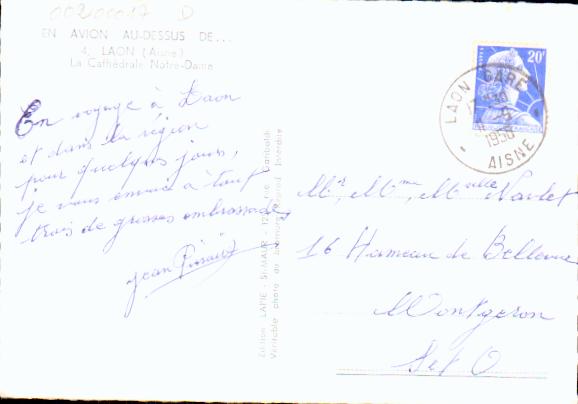 00200017 D
EN AVION AU-DESSUS DE...
4. LAON (Aisne)
La Cathédrale Notre-Dame
En voyage à Laon
et dans la région
pour quelques jours,
je vous envoie à tous
trois de grosses embrassades
Jean
Edition LAPIE - St-MAUR
Véritable photo au
20F
LAON GARE
1958
AISNE
Mr, Mme, Melle
16 Hameau de Bellevue
Montgeron
S et O